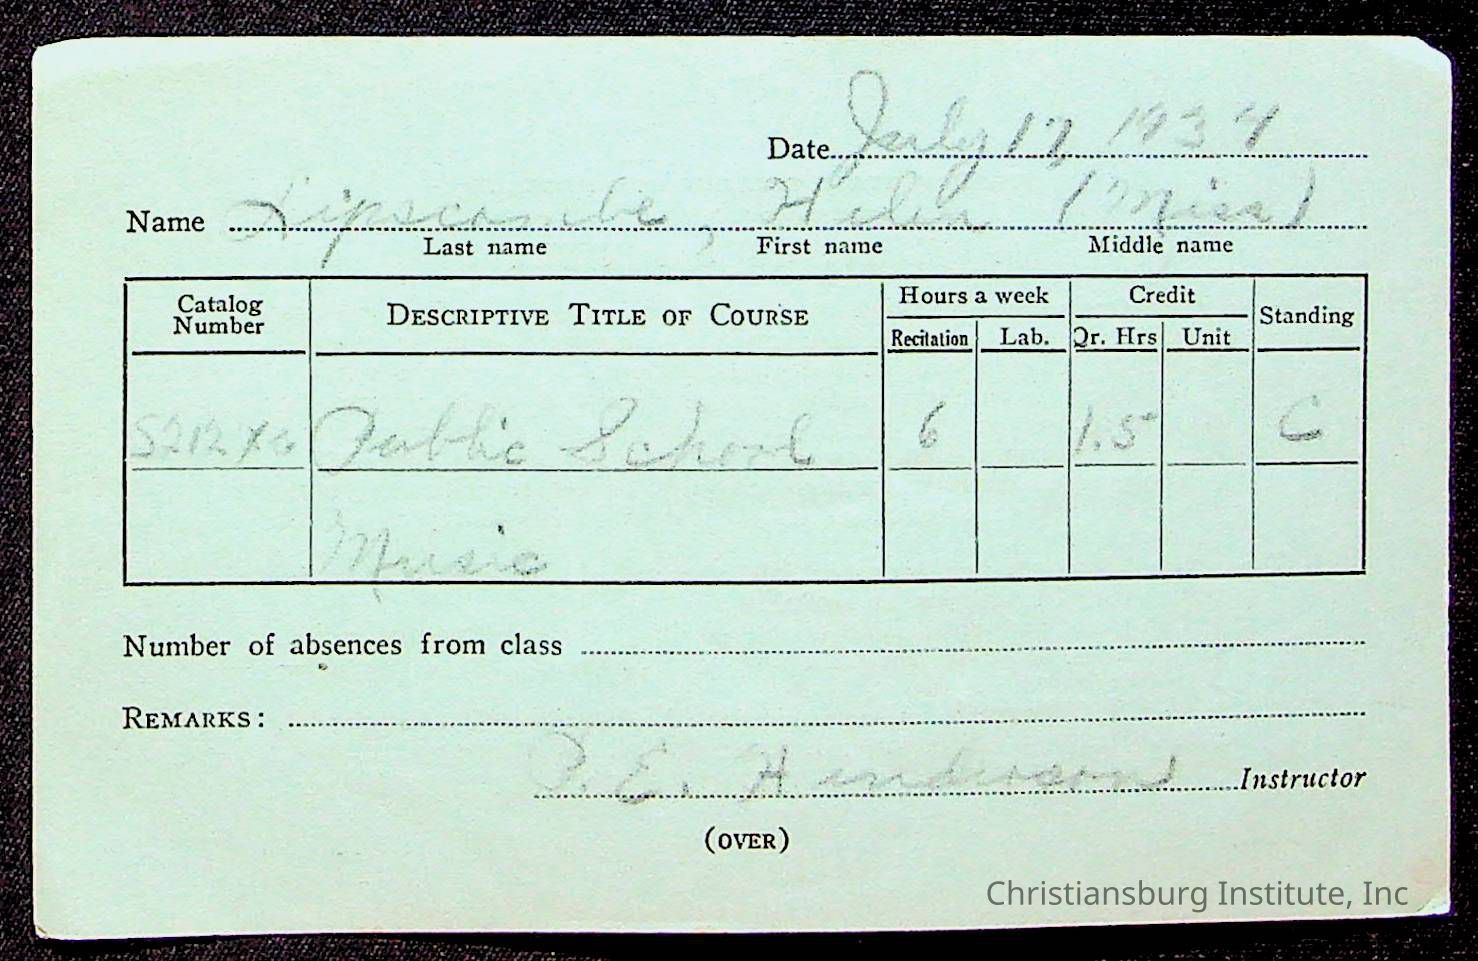 Date July 17, 1937
Name Lipscombe, Helen (Miss)
Last name First name Middle name
Catalog Number DESCRIPTIVE TITLE OF COURSE Hours a week Credit Standing
Recitation Lab. Qr. Hrs Unit
Public School 6 1.5 C
Music
Number of absences from class
REMARKS:
P. E. Henderson Instructor
(OVER)
Christiansburg Institute, Inc